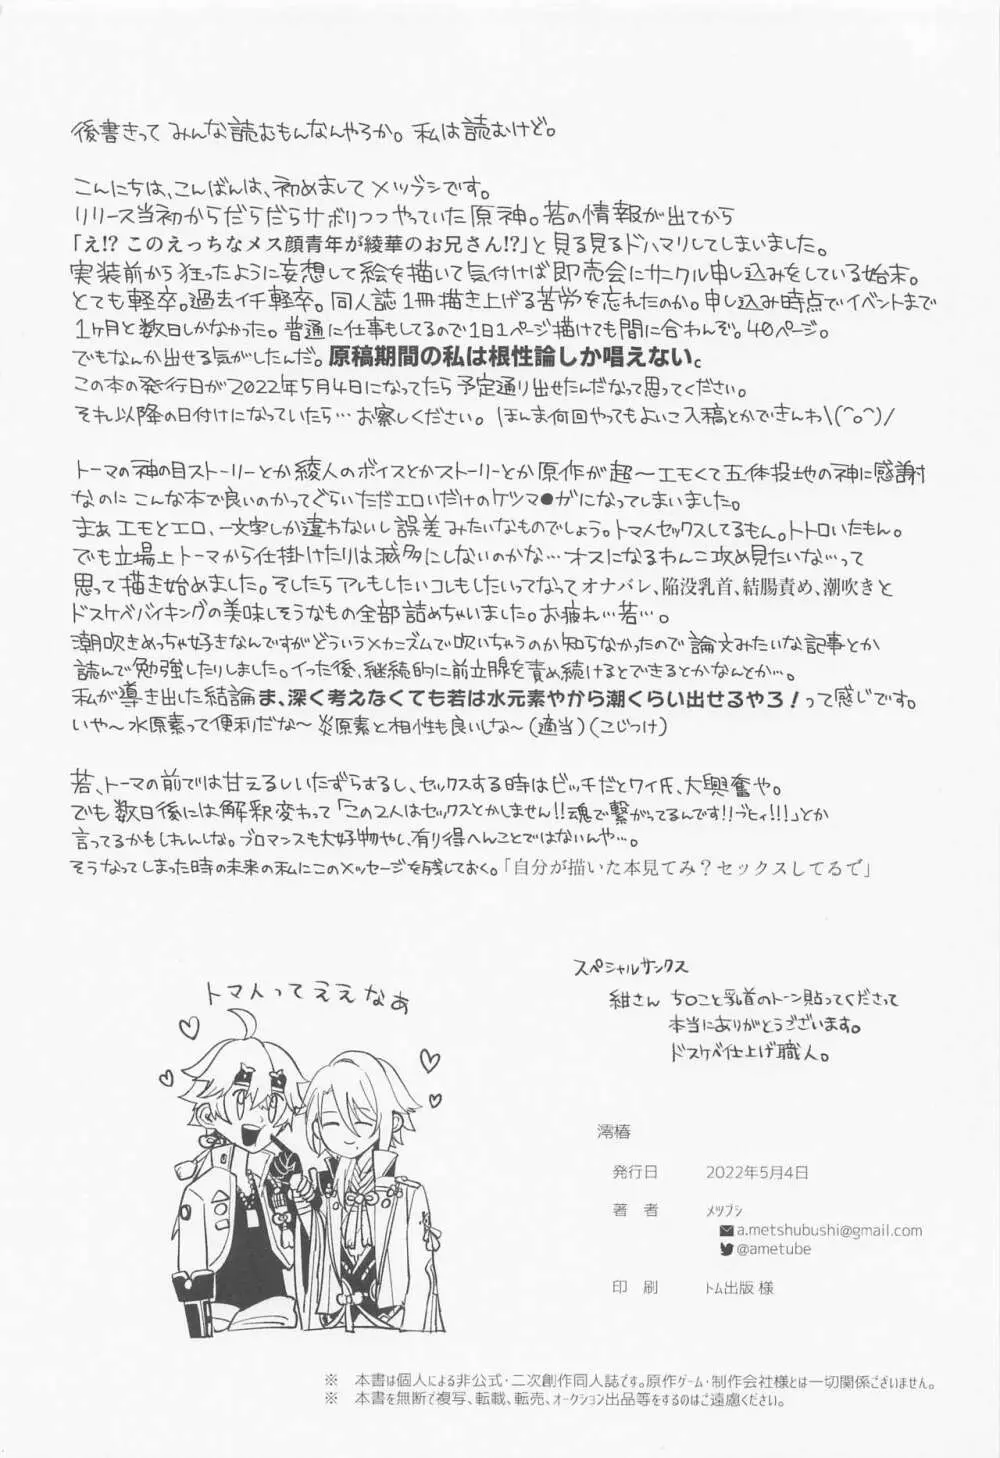 後書きって みんな読むもんなんやろか。私は読むけど。
こんにちは、こんばんは、初めましてメツブシです。
リリース当初からだらだらサボりつつやっていた原神。若の情報が出てから
「え!? このえっちなメス顔青年が綾華のお兄さん!?」と見る見るドハマリしてしまいました。
実装前から狂ったように妄想して絵を描いて気付けば即売会にサークル申し込みをしている始末。
とても軽卒。過去イチ軽卒。同人誌1冊描き上げる苦労を忘れたのか。申し込み時点でイベントまで
1ヶ月と数日しかなかった。普通に仕事もしてるので1日1ページ描けても間に合わんぞ。40ページ。
でもなんか出せる気がしたんだ。原稿期間の私は根性論しか唱えない。
この本の発行日が2022年5月4日になってたら予定通り出せたんだなって思ってください。
それ以降の日付けになっていたら…お察しください。ほんま何回やってもよいこ入稿とかできんわ\(^o^)/
トーマの神の目ストーリーとか綾人のボイスとかストーリーとか原作が超〜エモくて五体投地の神に感謝
なのにこんな本で良いのかってぐらいただエロいだけのケツマ●ガになってしまいました。
まぁエモとエロ、一文字しか違わないし誤差みたいなものでしょう。トマ人セックスしてるもん。トトロいたもん。
でも立場上トーマから仕掛けたりは滅多にしないのかな…オスになるわんこ攻め見たいな…って
思って描き始めました。そしたらアレもしたいコレもしたいってなってオナバレ、陥没乳首、結腸責め、潮吹きと
ドスケベバイキングの美味しそうなもの全部詰めちゃいました。お疲れ…若…。
潮吹きめっちゃ好きなんですがどういうメカニズムで吹いちゃうのか知らなかったので論文みたいな記事とか
読んで勉強したりしました。イった後、継続的に前立腺を責め続けるとできるとかなんとか…。
私が導き出した結論ま、深く考えなくても若は水元素やから潮くらい出せるやろ！って感じです。
いや〜水原素って便利だな〜炎原素と相性も良いしな〜(適当)(こじつけ)
若、トーマの前では甘えるしいたずらするし、セックスする時はビッチだとワイ氏、大興奮や。
でも数日後には解釈変わって「この2人はセックスとかしません!!魂で繋がってるんです!!ブヒィ!!!」とか
言ってるかもしれんしな。ブロマンスも大好物やし、有り得へんことではないんや…。
そうなってしまった時の未来の私にこのメッセージを残しておく。「自分が描いた本見てみ？セックスしてるで」
スペシャルサンクス
紺さん ち○こと乳首のトーン貼ってくださって
本当にありがとうございます。
ドスケベ仕上げ職人。
トマ人ってええなぁ
澪椿
発行日 2022年5月4日
著 者 メツブシ
a.metshubushi@gmail.com
@ametube
印 刷 トム出版 様
※ 本書は個人による非公式・二次創作同人誌です。原作ゲーム・制作会社様とは一切関係ございません。
※ 本書を無断で複写、転載、転売、オークション出品等をするのはご遠慮ください。